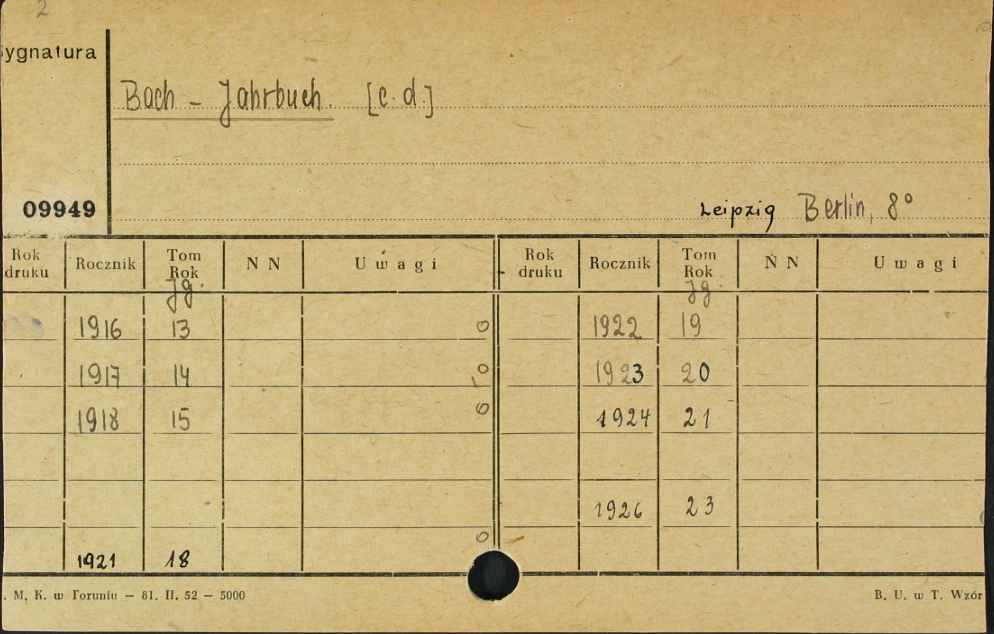 2
Sygnatura
Bach - Jahrbuch. [c. d.]
09949
Leipzig Berlin, 8°
Rok druku Rocznik Tom Rok N N Uwagi Rok druku Rocznik Tom Rok N N Uwagi
Jg. Jg.
1916 13 0 1922 19
1917 14 0 1923 20
1918 15 0 1924 21
1926 23
0
1921 18
. M. K. w Toruniu — 81. II. 52 — 5000 B. U. w T. Wzór